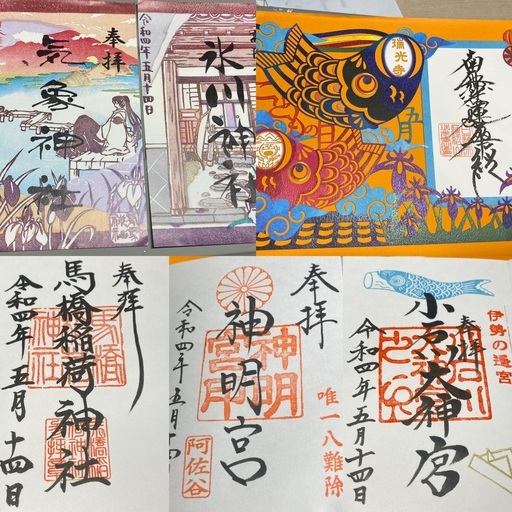 奉拝
気象神社
氷川神社
令和四年五月十四日
瑞光寺
五月
奉拝
馬橋稲荷神社
令和四年五月十四日
奉拝
唯一八難除
神明宮
令和四年五月十四
阿佐谷
伊勢の遥宮
奉拝
小石川大神宮
令和四年五月十四日